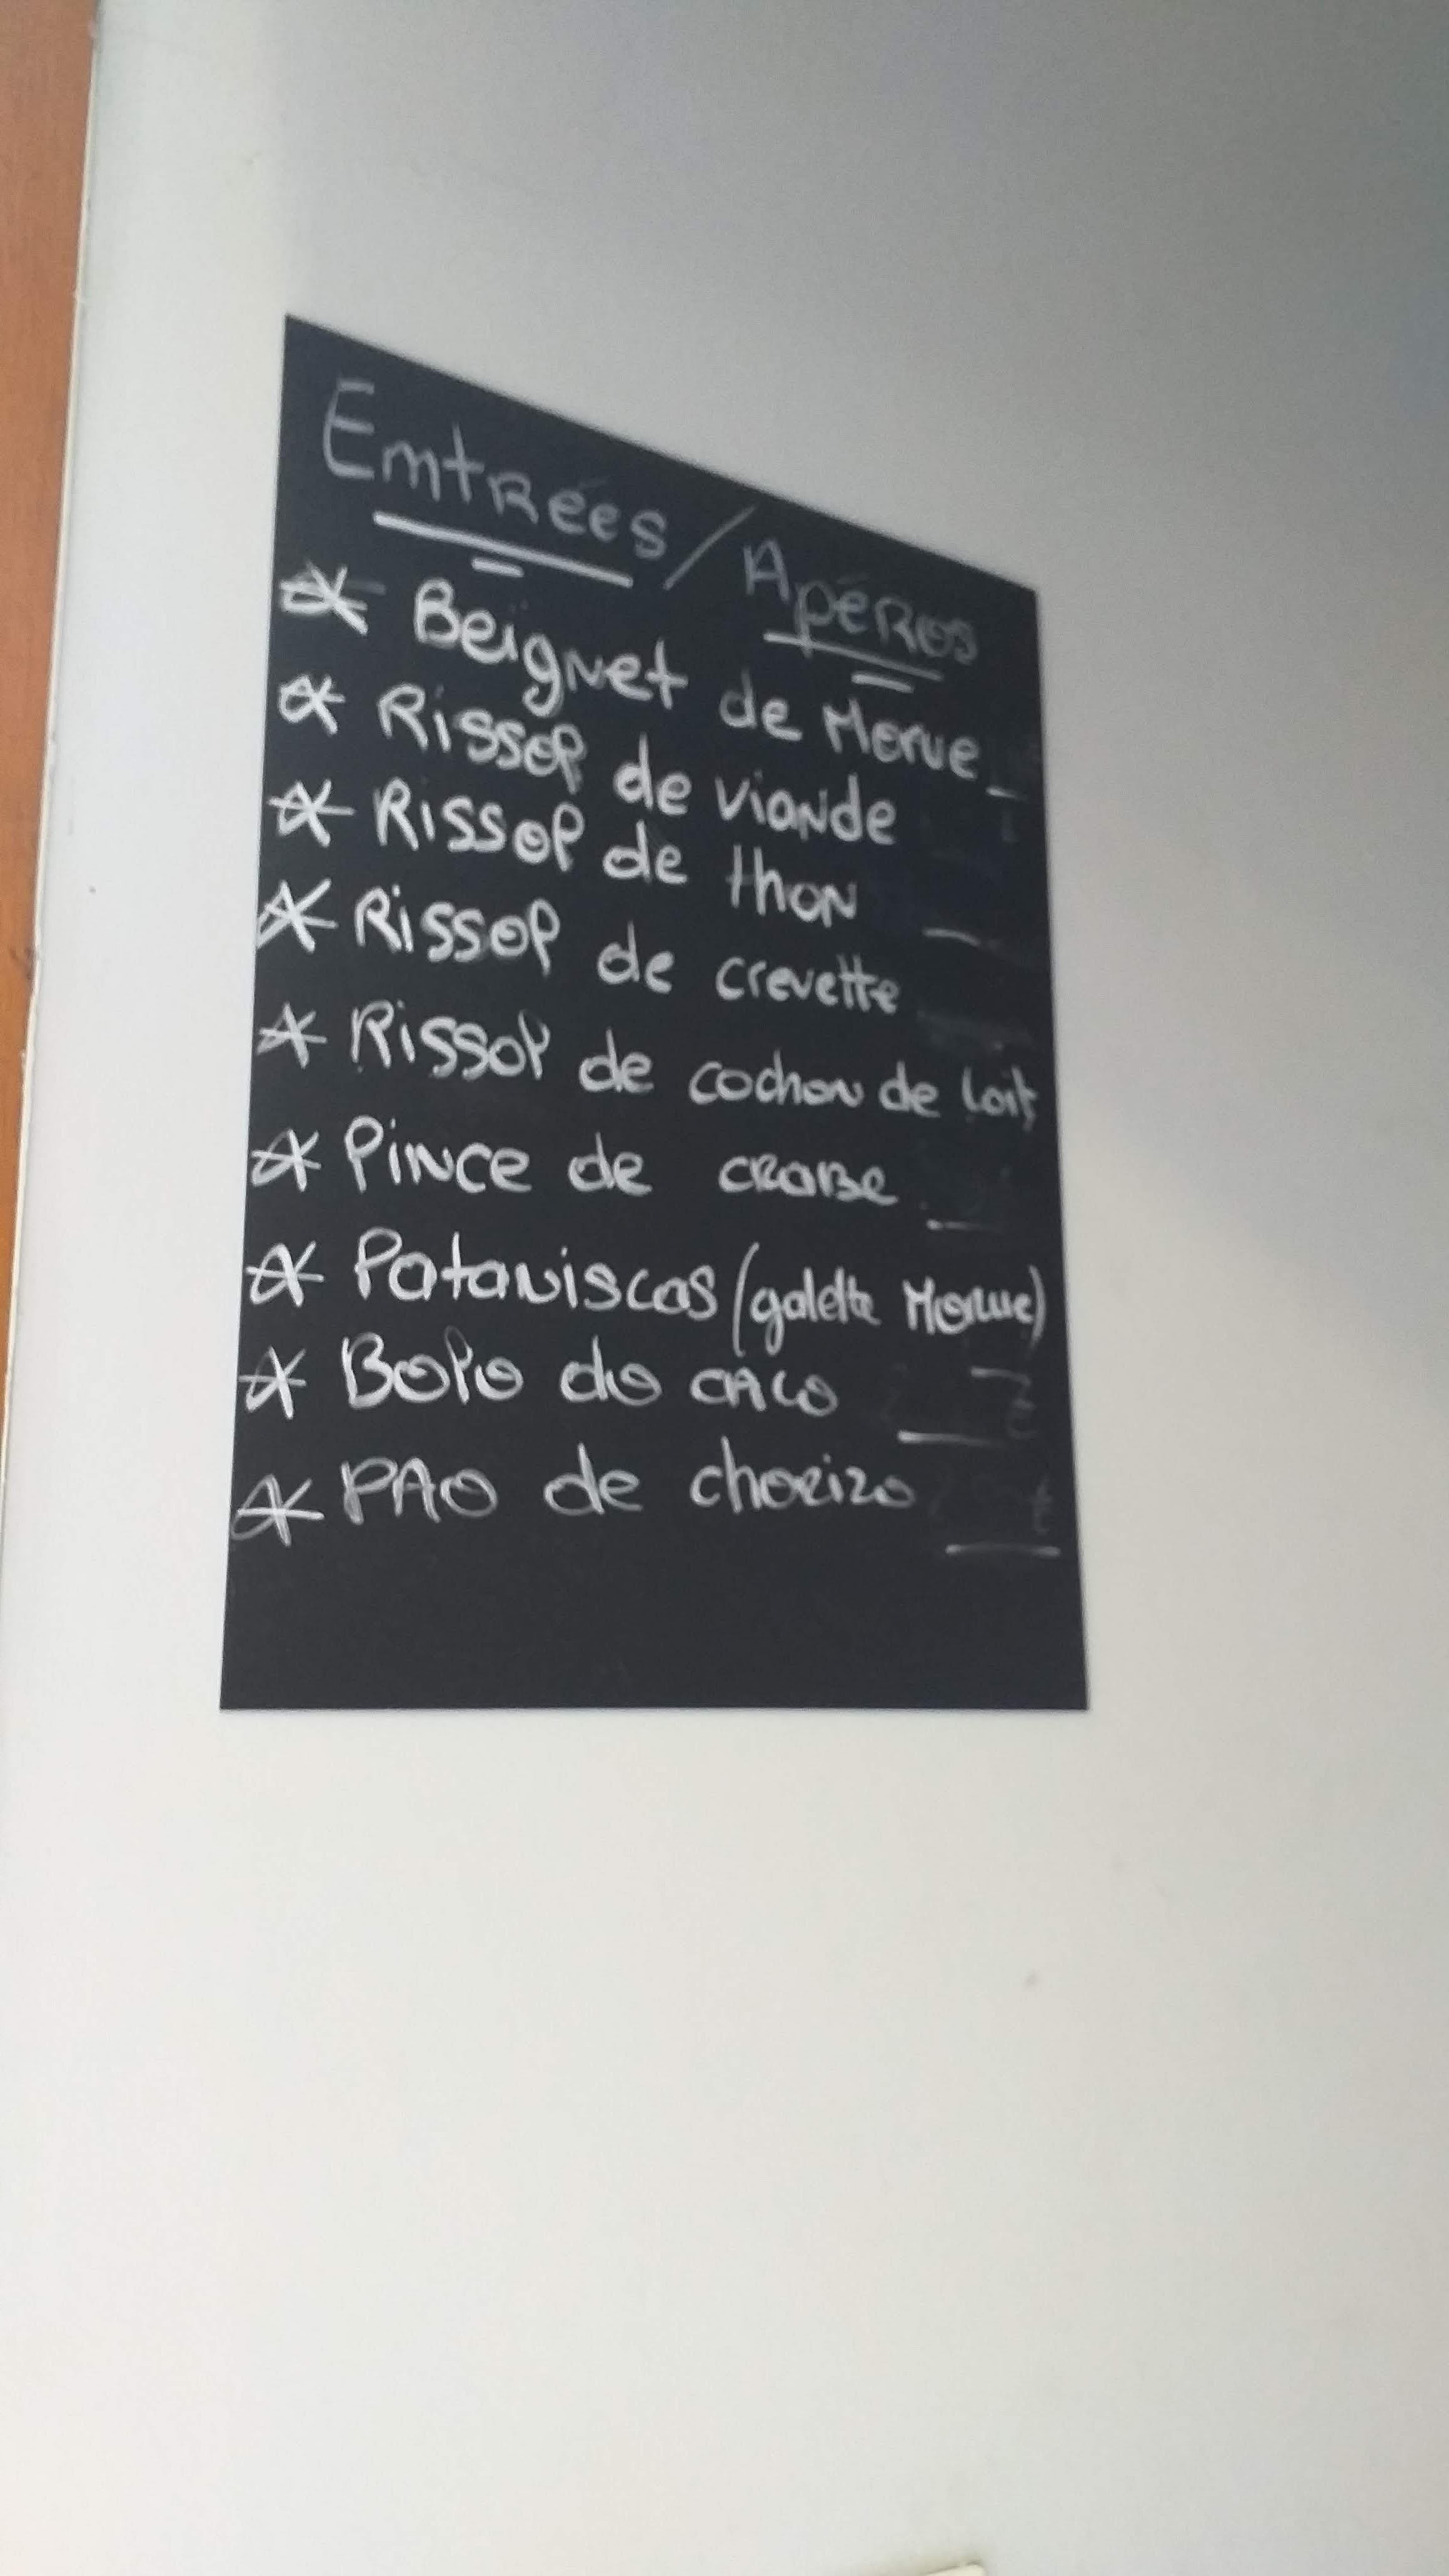 Emtrées / Apéros
* Beignet de Morue
* Rissol de viande
* Rissol de thon
* Rissol de crevette
* Rissol de cochon de lait
* Pince de crabe
* Pataniscas (galette Morue)
* Bolo do caco
* PAO de chorizo